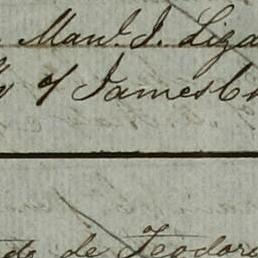 Manl. J. Liza
of James C
de Teodor